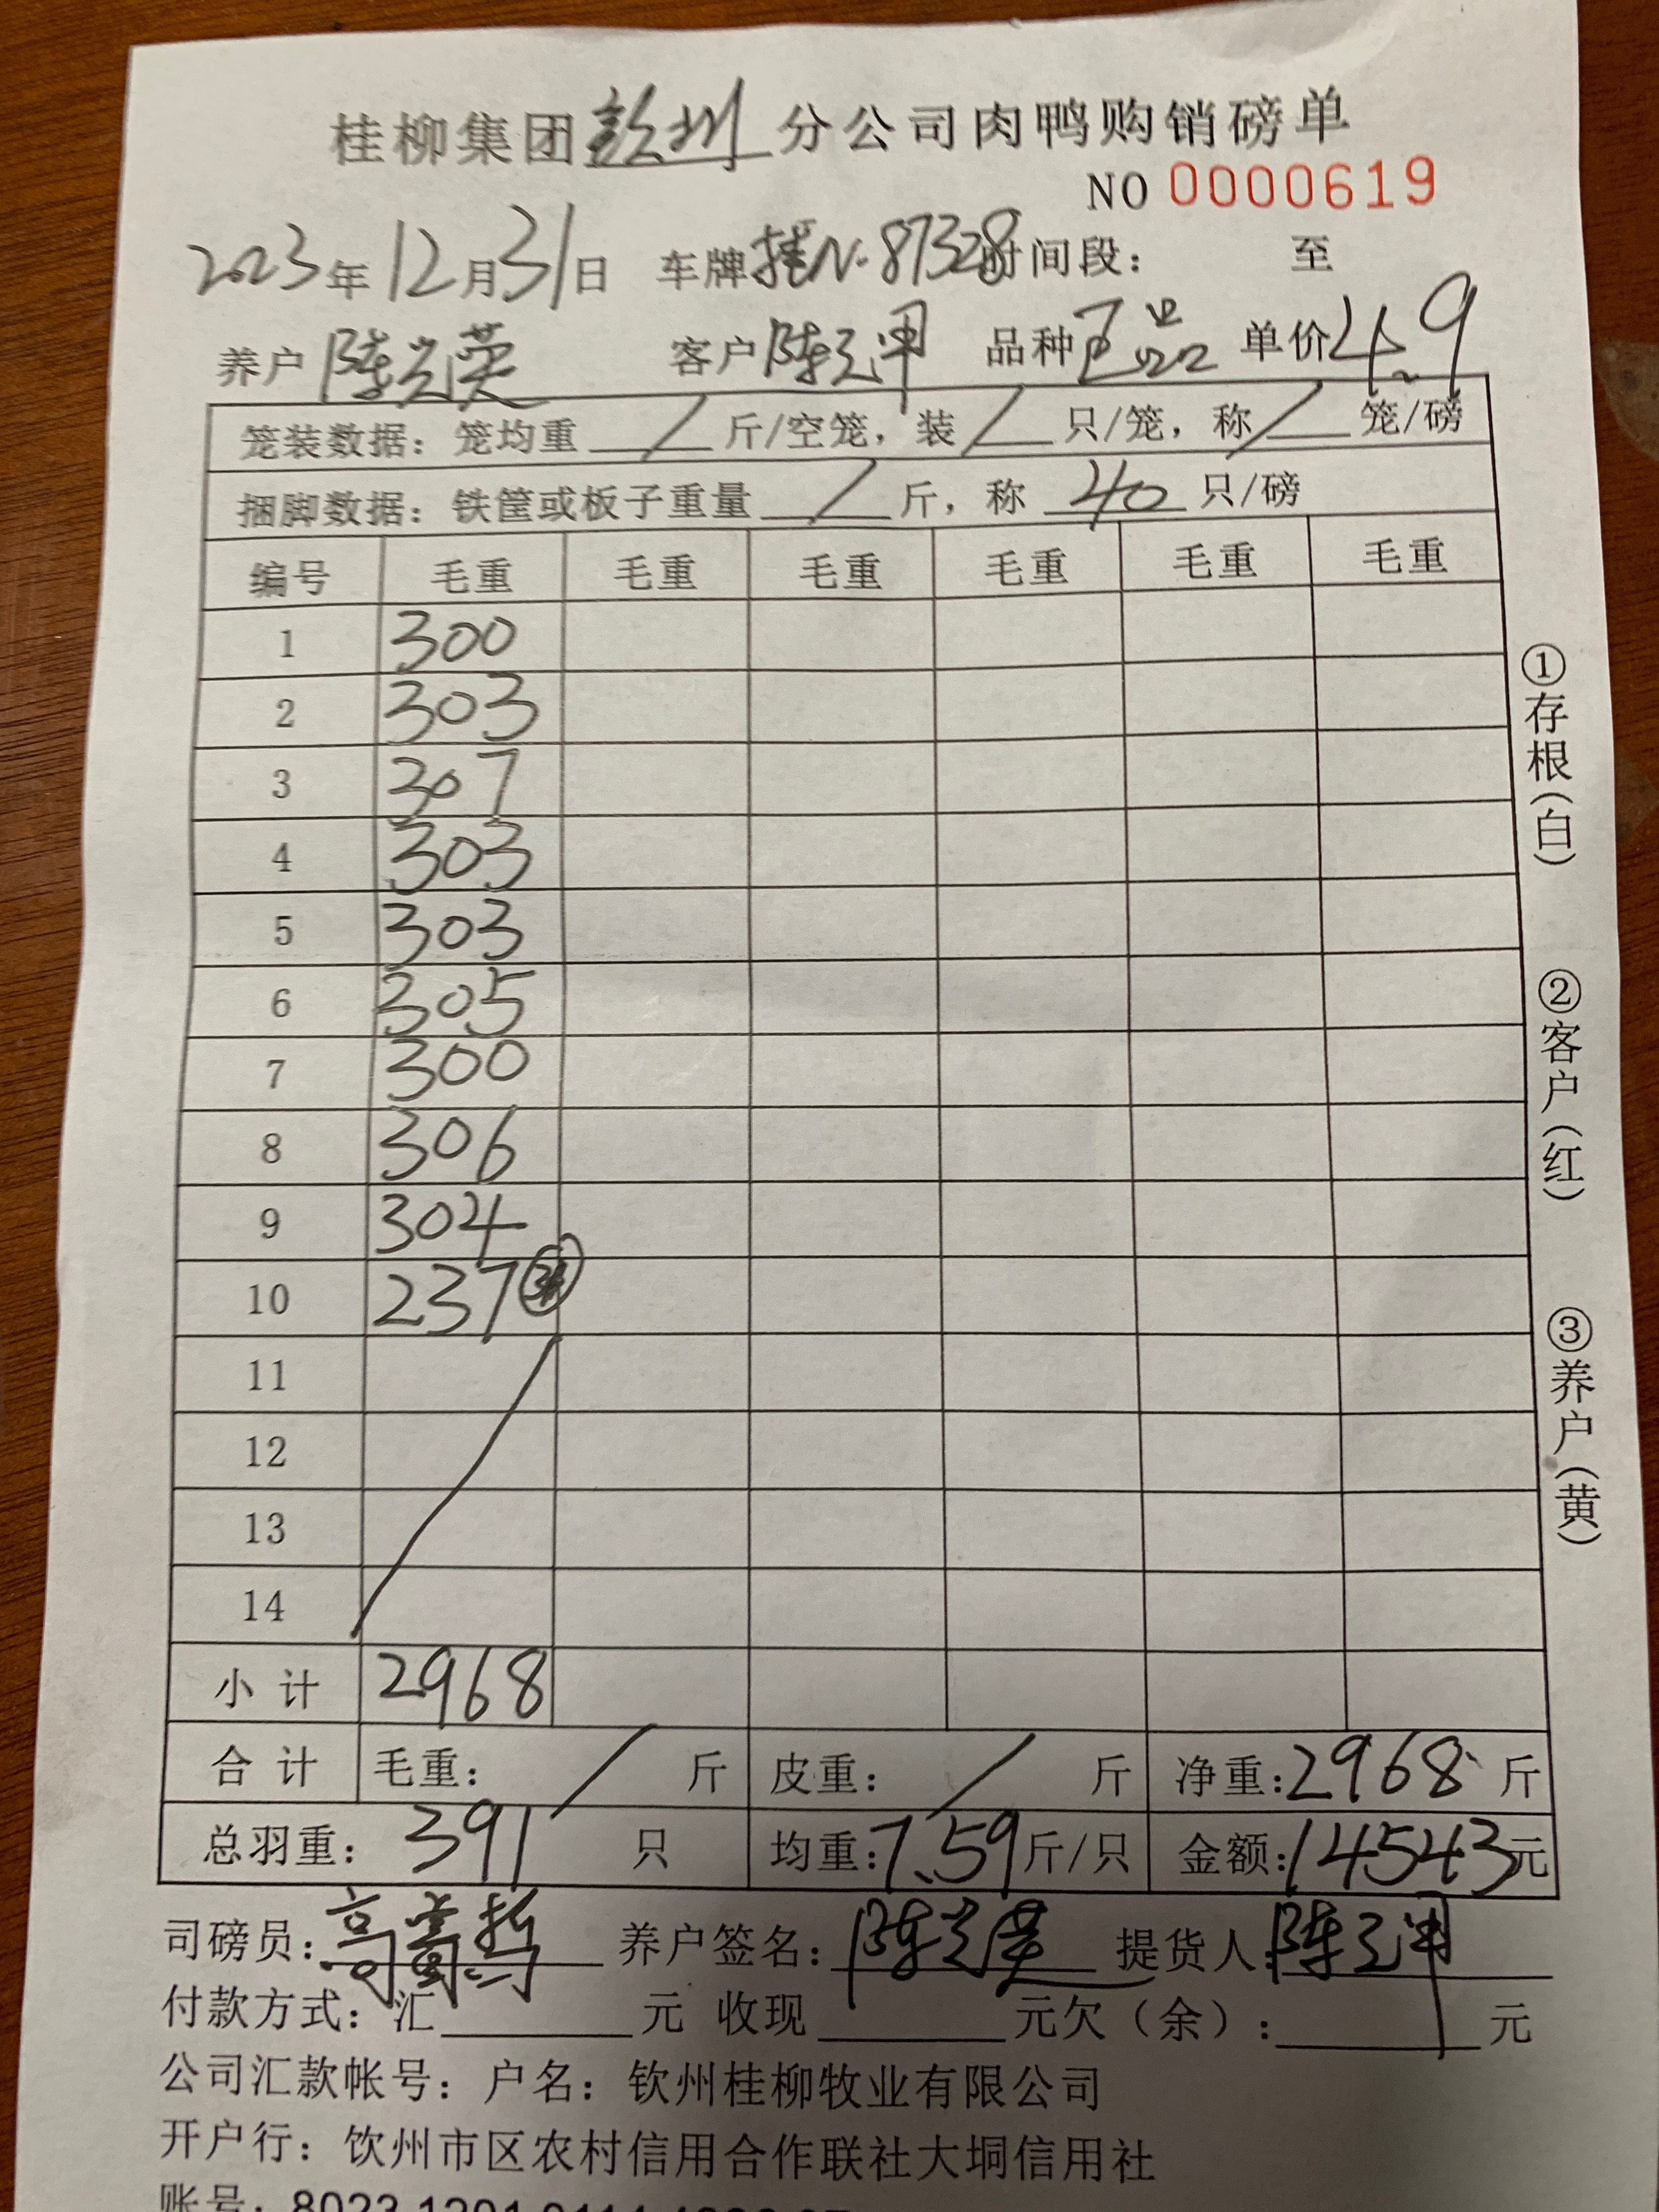 桂柳集团钦州分公司肉鸭购销磅单
NO 0000619
2023年12月31日 车牌桂N·87328时间段： 至
养户 陈光英 客户 陈 品种 正品 单价4.9
笼装数据：笼均重 / 斤/空笼，装 / 只/笼，称 / 笼/磅
捆脚数据：铁筐或板子重量 / 斤，称 40 只/磅
编号 毛重 毛重 毛重 毛重 毛重 毛重
1 300
2 303
3 307
4 303
5 303
6 305
7 300
8 306
9 304
10 237
11
12
13
14
小计 2968
合计 毛重： / 斤 皮重： / 斤 净重：2968 斤
总羽重：391 只 均重：7.59斤/只 金额：14543元
司磅员： 养户签名：陈光英 提货人：陈
付款方式：汇 元 收现 元欠（余）： 元
公司汇款帐号：户名：钦州桂柳牧业有限公司
开户行：钦州市区农村信用合作联社大垌信用社
账号：8023 1201 0114
①存根（白）
②客户（红）
③养户（黄）